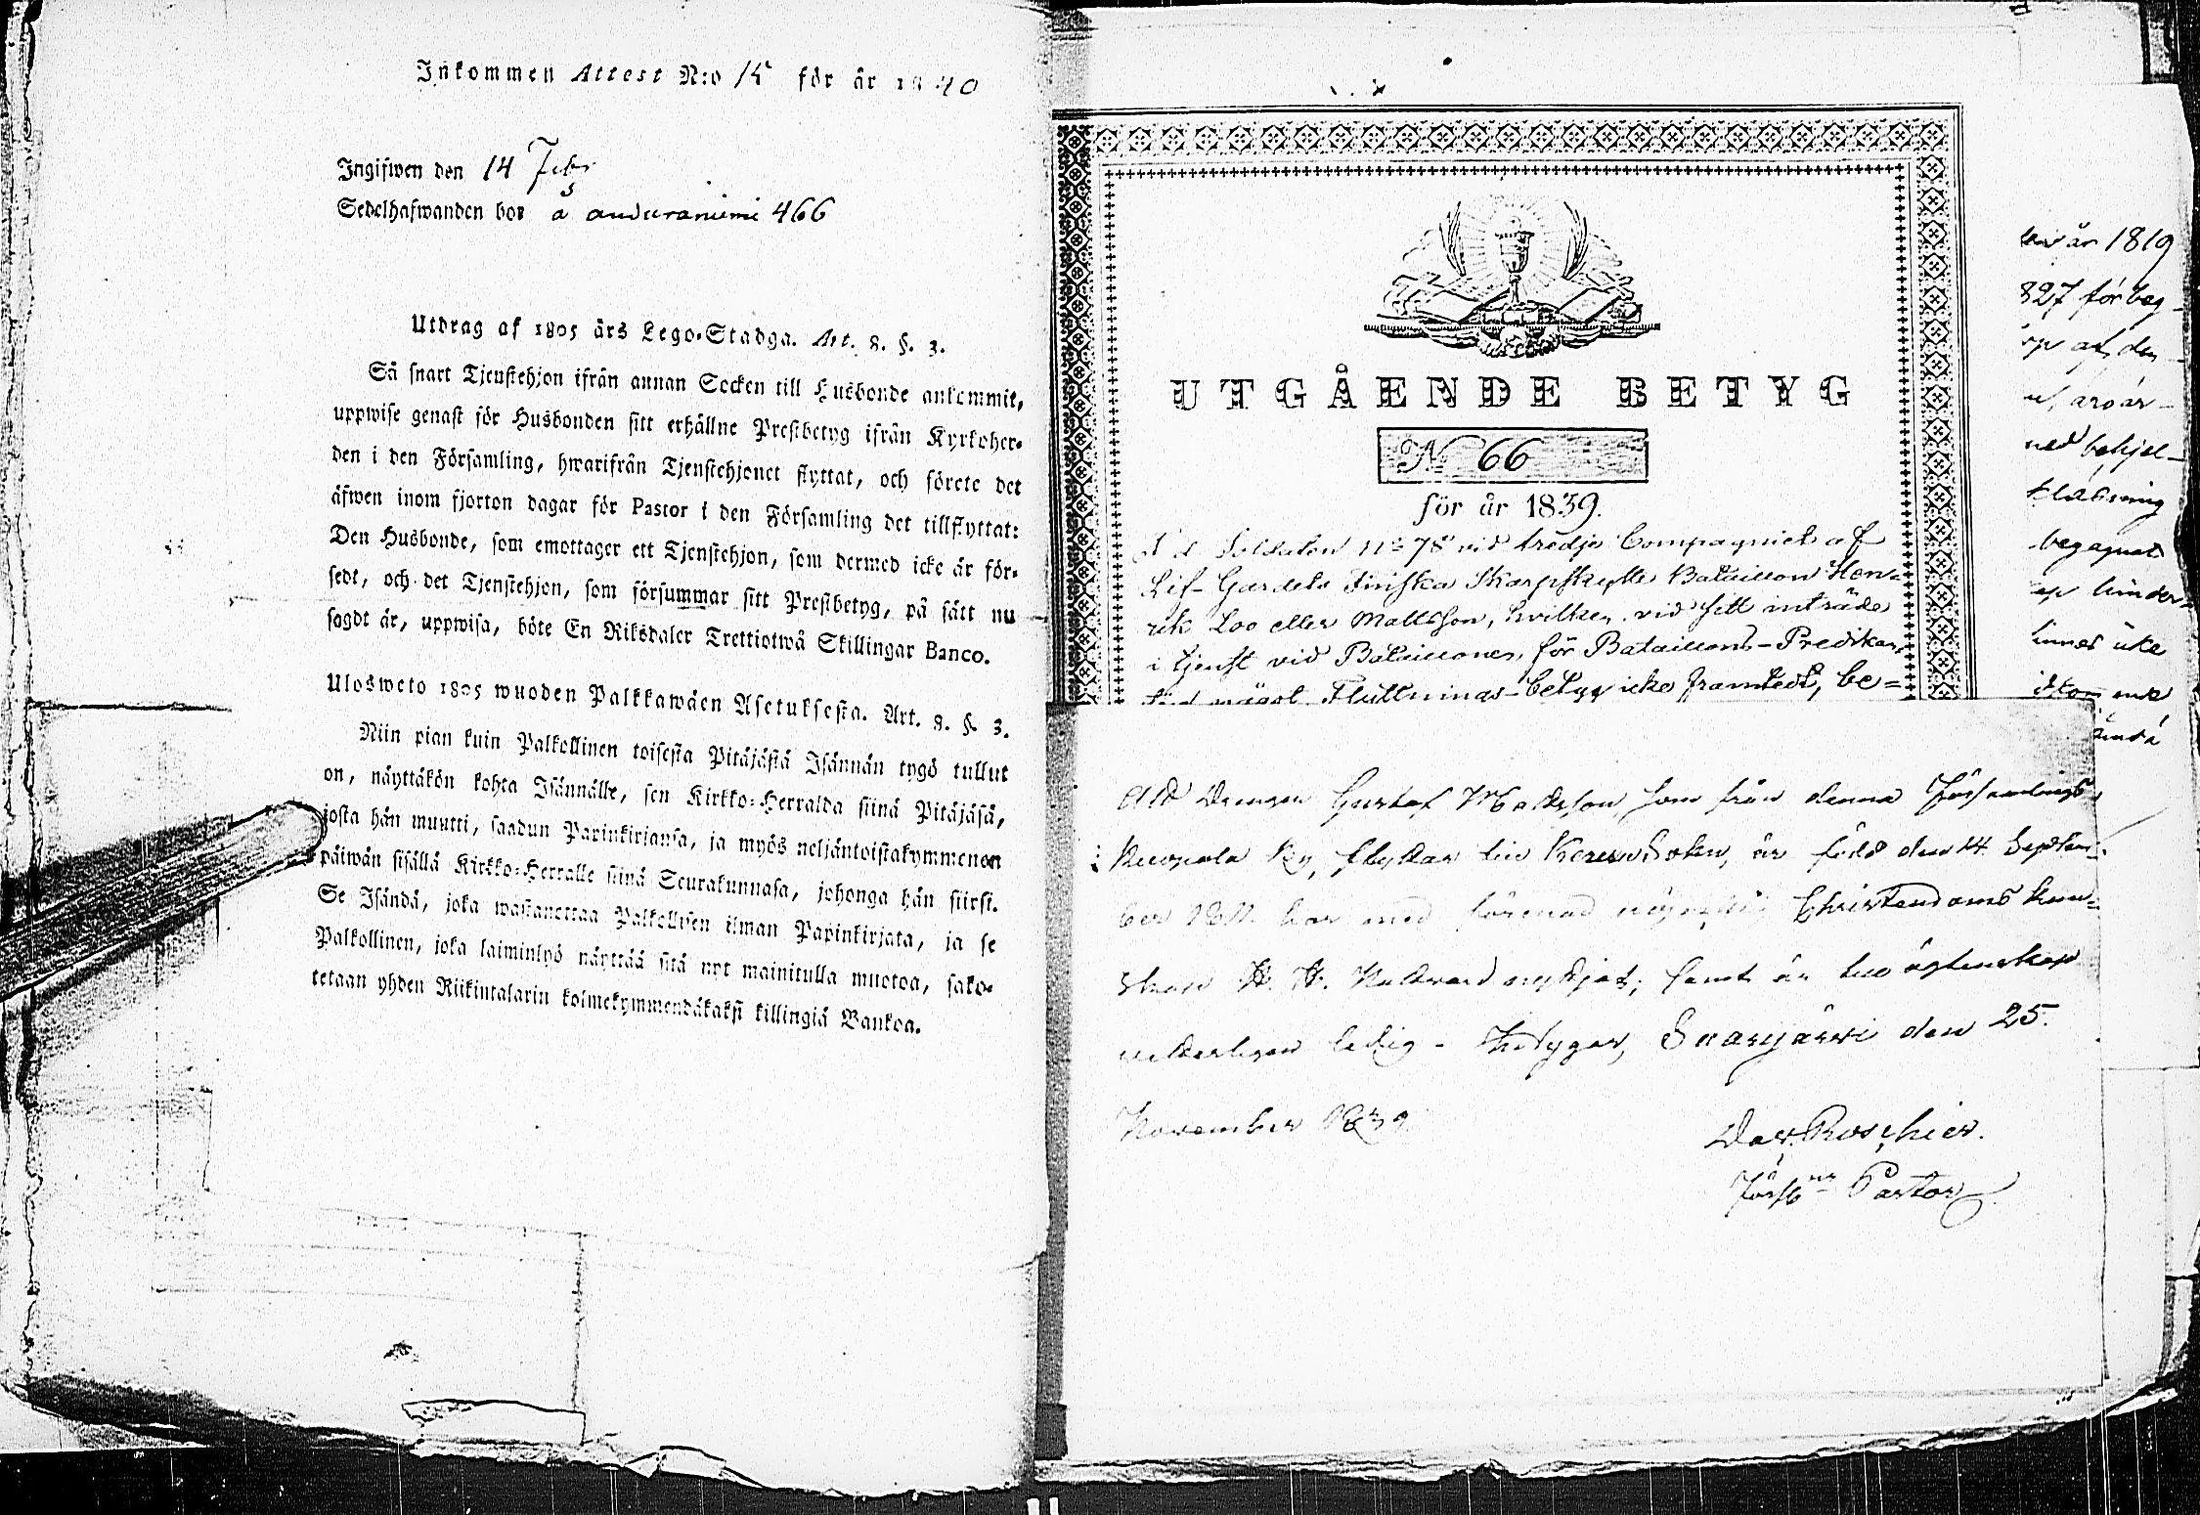 Inkommen Attest N:o 15 för år 1840
Ingifwen den 14 Febr
Sedelhafwanden bor å anduraniemi 466
Utdrag af 1805 års Lego-Stadga. Art. 8. §. 3.
Så snart Tjenstehjon ifrån annan Socken till Husbonde ankommit,
uppwise genast för Husbonden sitt erhållne Prestbetyg ifrån Kyrkoher-
den i den Församling, hwarifrån Tjenstehjonet flyttat, och förete det
äfwen inom fjorton dagar för Pastor i den Församling det tillflyttat:
Den Husbonde, som emottager ett Tjenstehjon, som dermed icke är för-
sedt, och det Tjenstehjon, som försummar sitt Prestbetyg, på sätt nu
sagdt är, uppwisa, böte En Riksdaler Trettiotwå Skillingar Banco.
Ulosweto 1805 wuoden Palkkawäen Asetuksesta. Art. 8. §. 3.
Niin pian kuin Palkollinen toisesta Pitäjästä Isännän tygö tullut
on, näyttäkön kohta Isännälle, sen Kirkko-Herralda siinä Pitäjäsä,
josta hän muutti, saadun Papinkirjansa, ja myös neljäntoistakymmenen
päiwän sisällä Kirkko-Herralle siinä Seurakunnasa, johonga hän siirsi.
Se Isändä, joka wastanottaa Palkollisen ilman Papinkirjata, ja se
Palkollinen, joka laiminlyö näyttää sitä nyt mainitulla muotoa, sako-
tetaan yhden Riikintalarin kolmekymmendäkaksi killingiä Bankoa.
UTGÅENDE BETYG
No 66
för år 1839.
Soldaten No 78 vid tredje Compagniet af
Lif-Gardets Finska Skarpskytte Bataillon Hen-
rik Loo eller Mattsson, hvilken vid sitt inträde
i tjenst vid Bataillonen, för Bataillons-Predikan
något Flyttnings-betyg icke framtedt, be=
år 1819
827 för beg-
af den
är-
med behjel-
begagnat
hinder
finnes icke
ändå
Drengen Gustaf Madsson som från denna Församlings
Kuopala by, flyttar till Socken, är född den 14 Septem-
ber har med Christendoms kun=
skap H. H. Nattvard samt är till ägtenskap
ledig - Intygar, Saarijärvi den 25.
November 1839
Dav. Roschier.
Förs:ns Pastor